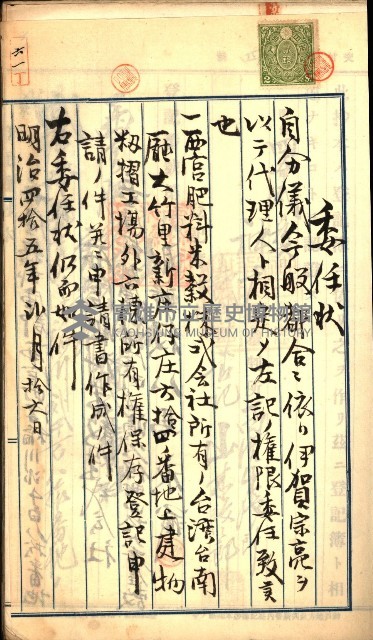 委任状
自分儀今般都合ニ依リ伊賀宗亮ヲ
以テ代理人ト相定メ左記ノ権限委任致候
也
一西宮肥料米穀株式会社所有ノ台湾台南
廳大竹里新庄仔庄六拾四番地上建物
籾摺工場外六棟所有権保存登記申
請ノ件并ニ申請書作成ノ件
右委任状仍而如件
明治四拾五年 月拾六日
六一
高雄市立歷史博物館
KAOHSIUNG MUSEUM OF HISTORY